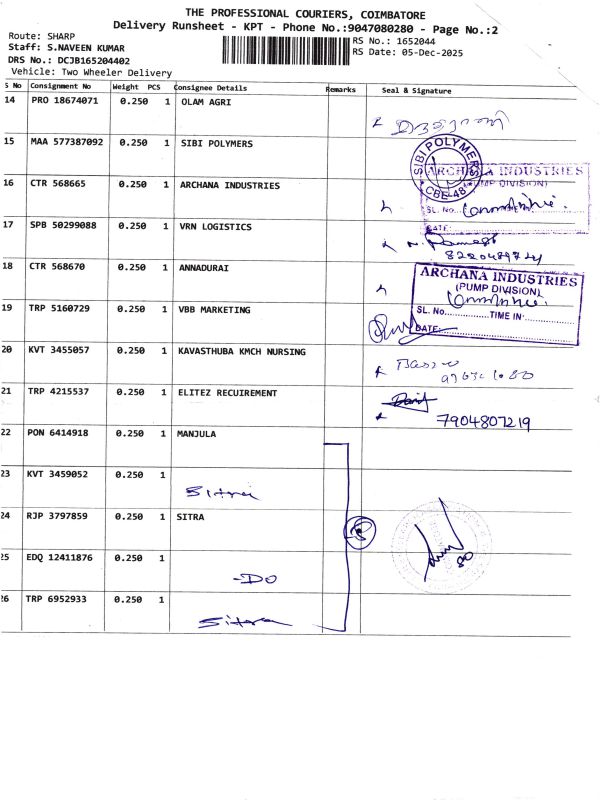 THE PROFESSIONAL COURIERS, COIMBATORE
Delivery Runsheet - KPT - Phone No.:9047080280 - Page No.:2
Route: SHARP
RS No.: 1652044
Staff: S.NAVEEN KUMAR
RS Date: 05-Dec-2025
DRS No.: DCJB165204402
Vehicle: Two Wheeler Delivery
S No Consignment No Weight PCS Consignee Details Remarks Seal & Signature
14 PRO 18674071 0.250 1 OLAM AGRI
15 MAA 577387092 0.250 1 SIBI POLYMERS
SIBI POLYMERS
CBE-48
ARCHANA INDUSTRIES
(PUMP DIVISION)
SL. No.
DATE:
16 CTR 568665 0.250 1 ARCHANA INDUSTRIES
17 SPB 50299088 0.250 1 VRN LOGISTICS
18 CTR 568670 0.250 1 ANNADURAI
ARCHANA INDUSTRIES
(PUMP DIVISION)
SL. No. TIME IN
DATE:
19 TRP 5160729 0.250 1 VBB MARKETING
20 KVT 3455057 0.250 1 KAVASTHUBA KMCH NURSING
21 TRP 4215537 0.250 1 ELITEZ RECUIREMENT
7904807219
22 PON 6414918 0.250 1 MANJULA
23 KVT 3459052 0.250 1 Sitra
24 RJP 3797859 0.250 1 SITRA
25 EDQ 12411876 0.250 1 -DO
26 TRP 6952933 0.250 1 Sitra